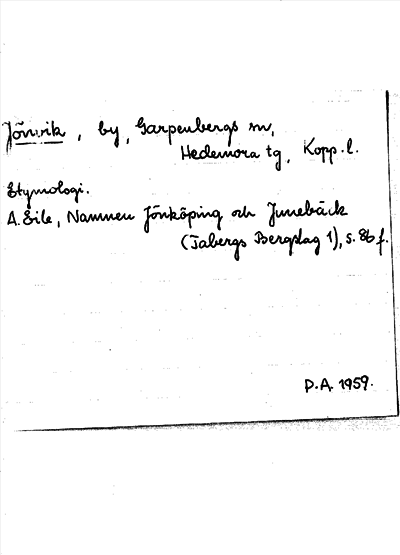 Jönvik, by, Garpenbergs sn,
Hedemora tg, Kopp. l.
Etymologi.
A. Eile, Namnen Jönköping och Junebäck
(Tabergs Bergslag 1), s. 86 f.
P.A. 1959.